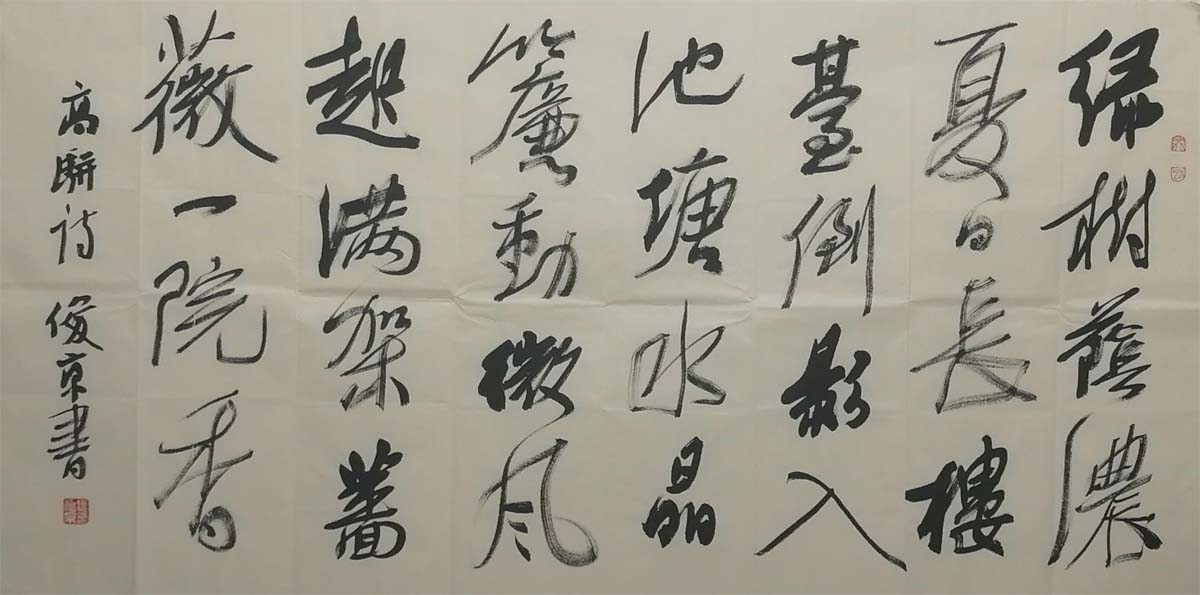 绿树蔭濃
夏日長樓
臺倒影入
池塘水晶
簾動微风
起满架薔
薇一院香
高駢诗 俊京書